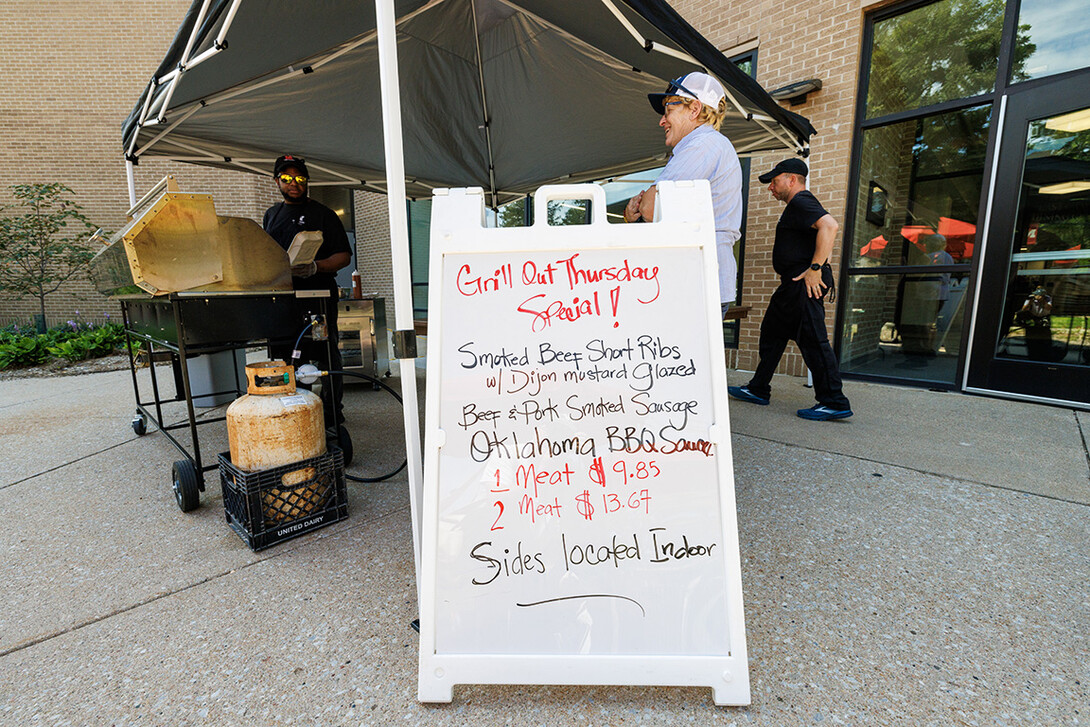 Grill Out Thursday
Special!
Smoked Beef Short Ribs
w/ Dijon mustard Glazed
Beef & Pork Smoked Sausage
Oklahoma BBQ Sauce
1 Meat $ 9.85
2 Meat $ 13.67
Sides located Indoor
UNITED DAIRY